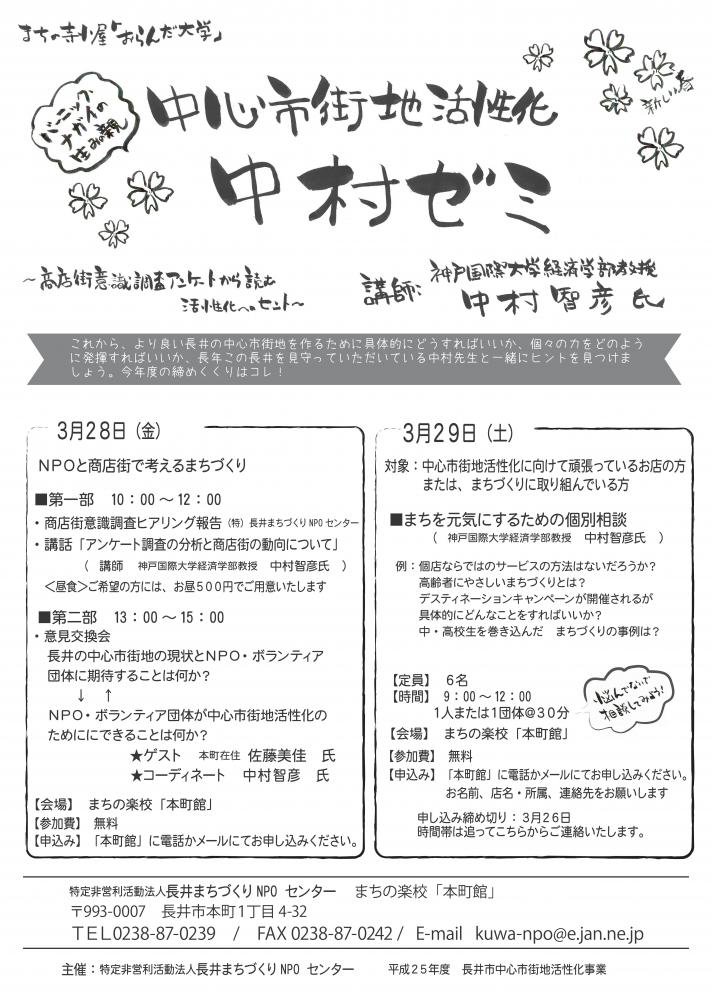 まちの寺小屋「おらんだ大学」
新しい春
バーニング
ナガイの
生みの親
中心市街地活性化
中村ゼミ
～商店街意識調査アンケートから読む
活性化へのヒント～
講師: 神戸国際大学経済学部教授
中村智彦氏
これから、より良い長井の中心市街地を作るために具体的にどうすればいいか、個々の力をどのよう
に発揮すればいいか、長年この長井を見守っていただいている中村先生と一緒にヒントを見つけま
しょう。今年度の締めくくりはコレ！
3月28日（金）
ＮＰＯと商店街で考えるまちづくり
■第一部　10：00～12：00
・商店街意識調査ヒアリング報告（特）長井まちづくりNPOセンター
・講話「アンケート調査の分析と商店街の動向について」
（　講師　神戸国際大学経済学部教授　中村智彦氏　）
＜昼食＞ご希望の方には、お昼５００円でご用意いたします
■第二部　13：00～15：00
・意見交換会
長井の中心市街地の現状とＮＰＯ・ボランティア
団体に期待することは何か？
↓　↑
ＮＰＯ・ボランティア団体が中心市街地活性化の
ためににできることは何か？
★ゲスト　本町在住　佐藤美佳　氏
★コーディネート　中村智彦　氏
【会場】　まちの楽校「本町館」
【参加費】　無料
【申込み】　「本町館」に電話かメールにてお申し込みください。
3月29日（土）
対象：中心市街地活性化に向けて頑張っているお店の方
または、まちづくりに取り組んでいる方
■まちを元気にするための個別相談
（　神戸国際大学経済学部教授　中村智彦氏　）
例：個店ならではのサービスの方法はないだろうか？
高齢者にやさしいまちづくりとは？
デスティネーションキャンペーンが開催されるが
具体的にどんなことをすればいいか？
中・高校生を巻き込んだ　まちづくりの事例は？
【定員】　６名
【時間】　９：00～12：00
1人または1団体＠３０分
悩んでないで
相談してみよう!
【会場】　まちの楽校「本町館」
【参加費】　無料
【申込み】　「本町館」に電話かメールにてお申し込みください。
お名前、店名・所属、連絡先をお願いします
申し込み締め切り：３月２６日
時間帯は追ってこちらからご連絡いたします。
特定非営利活動法人長井まちづくりNPO センター　まちの楽校「本町館」
〒993-0007　長井市本町1丁目4-32
ＴＥＬ0238-87-0239　/　FAX 0238-87-0242 /　E-mail　kuwa-npo@e.jan.ne.jp
主催：特定非営利活動法人長井まちづくりNPO センター　　平成２５年度　長井市中心市街地活性化事業